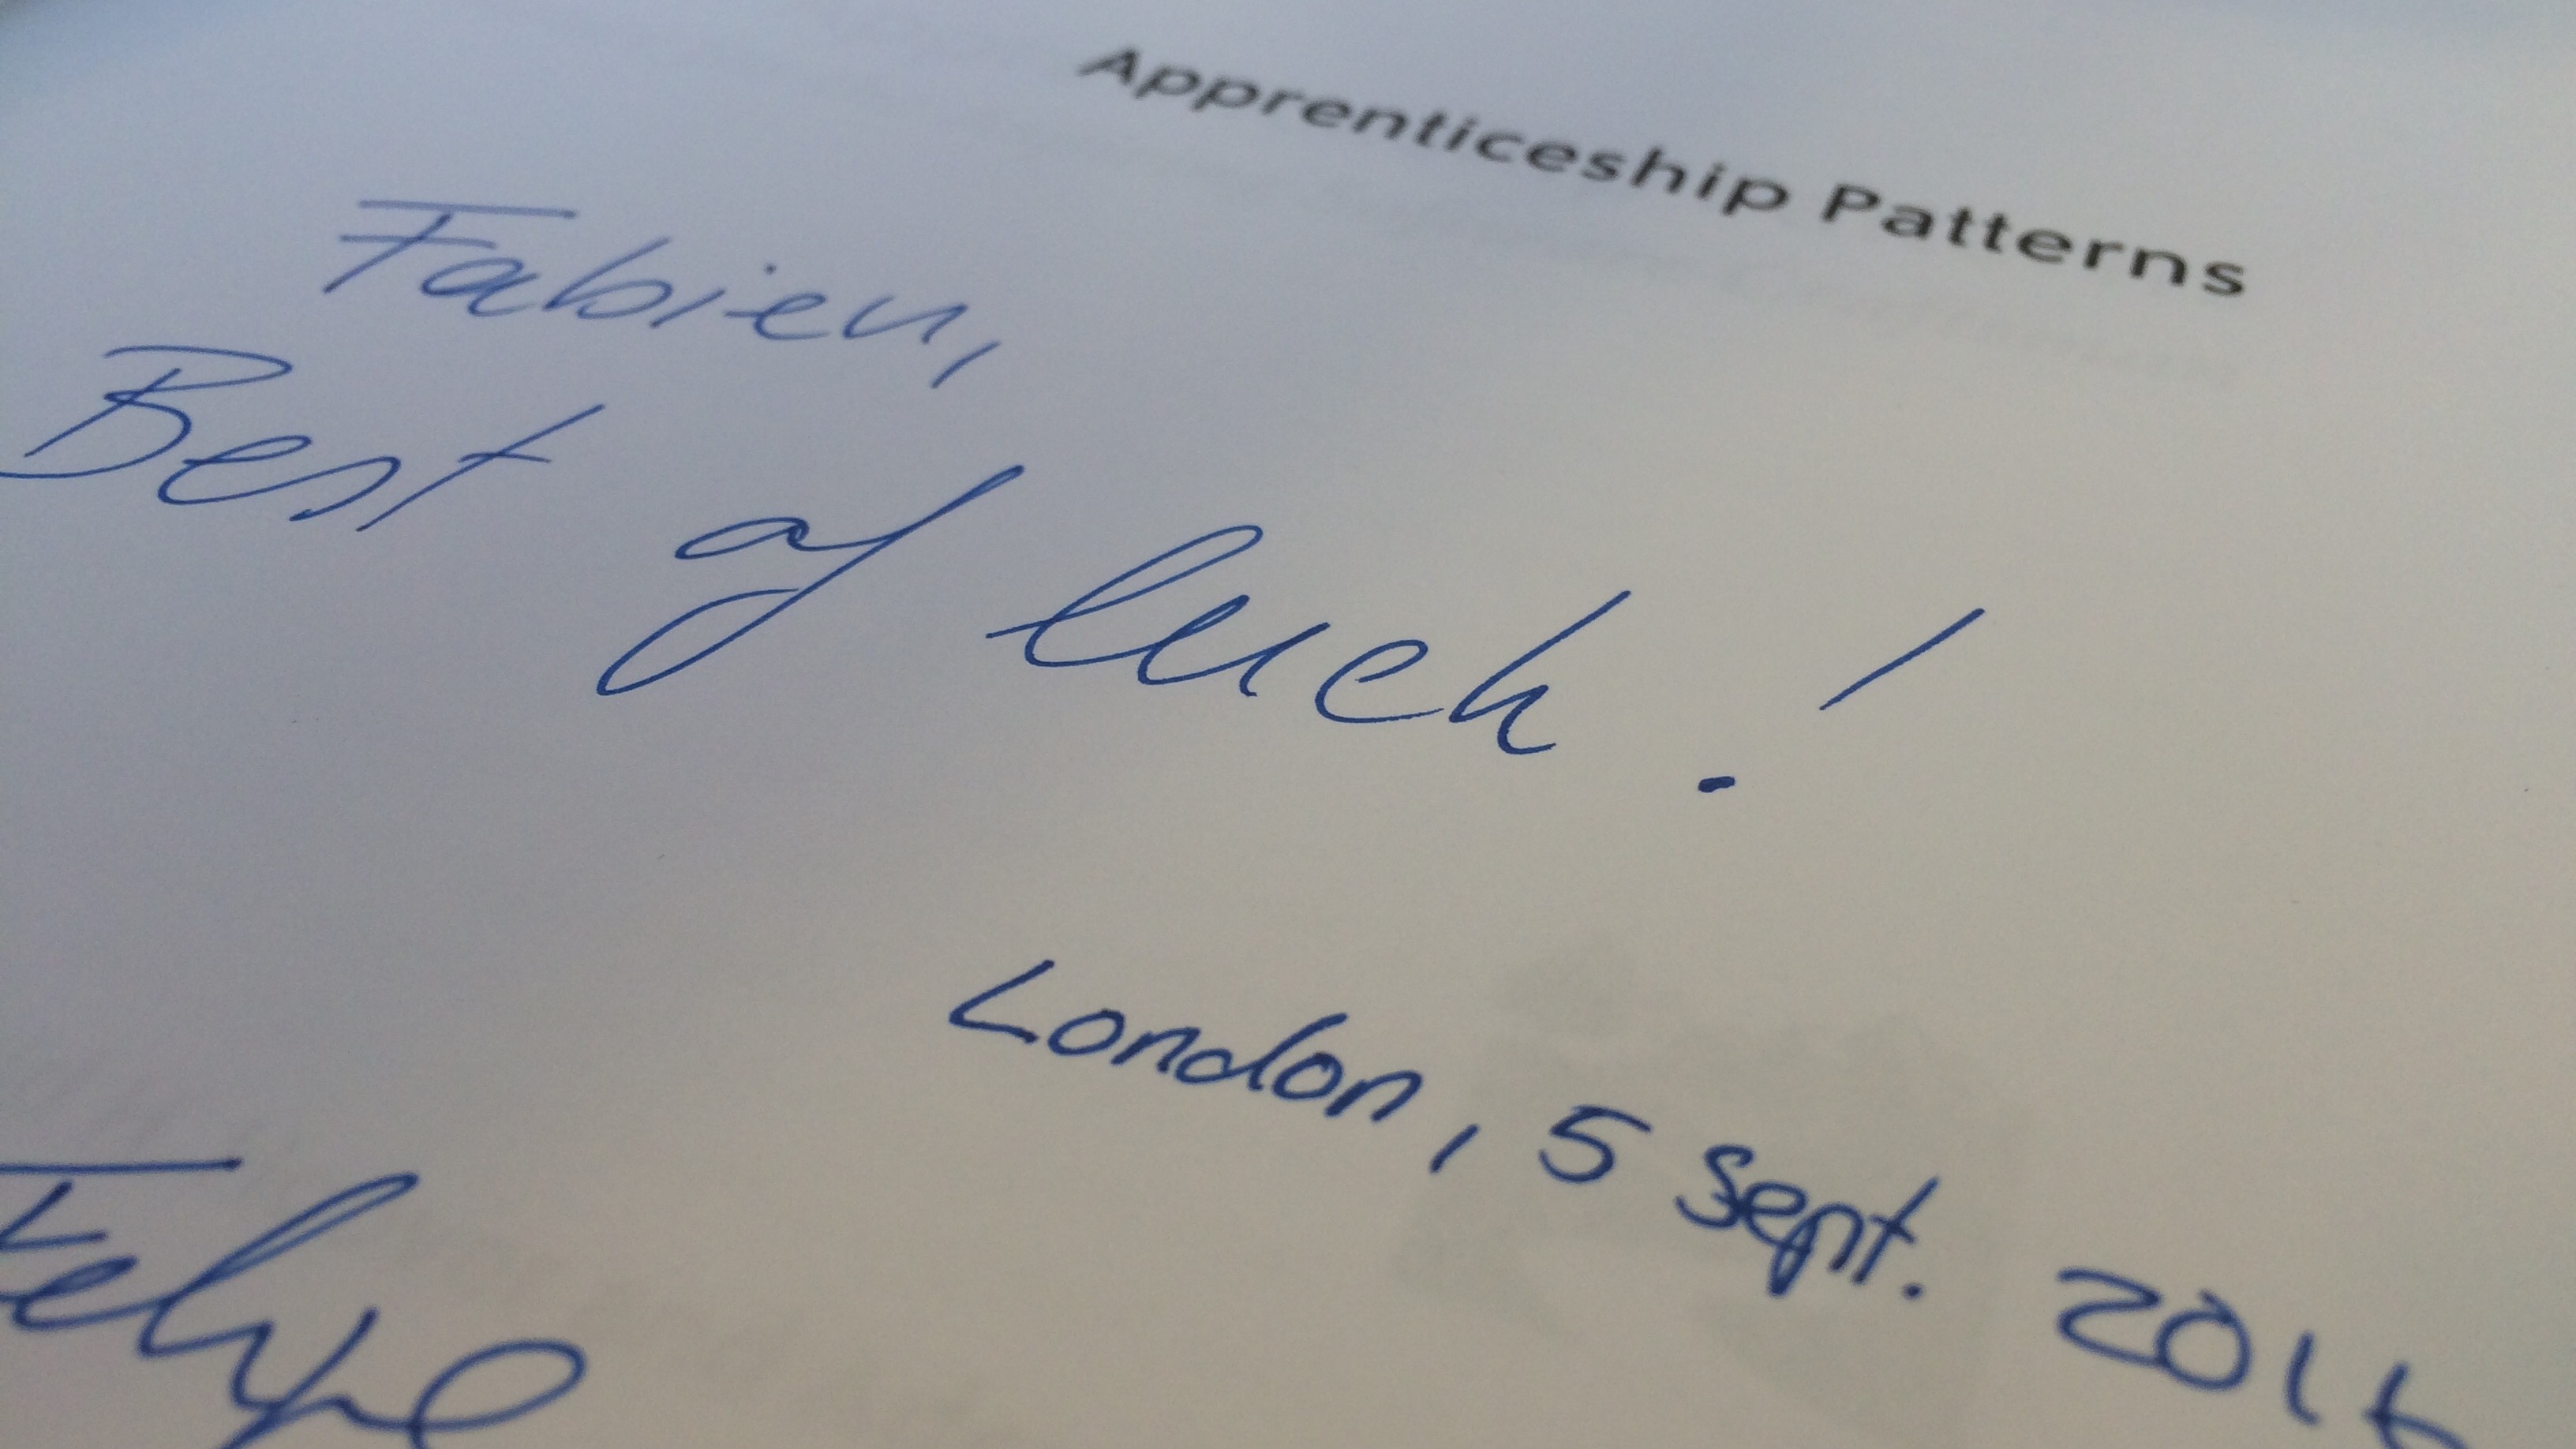 Apprenticeship Patterns
Fabien,
Best of luck!
London, 5 Sept.
Felipe